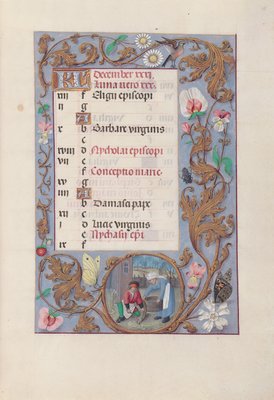 KL December xxxi
Luna vero xxx.
xiii f Eligii episcopi
ii g
A
x b Barbare virginis
c
xviii d Nycholai episcopi
vii e
f Conceptio marie
xv g
iiii A
b Damasi pape
xii c
i d Lucie virginis
e Nychasii epi
ix f